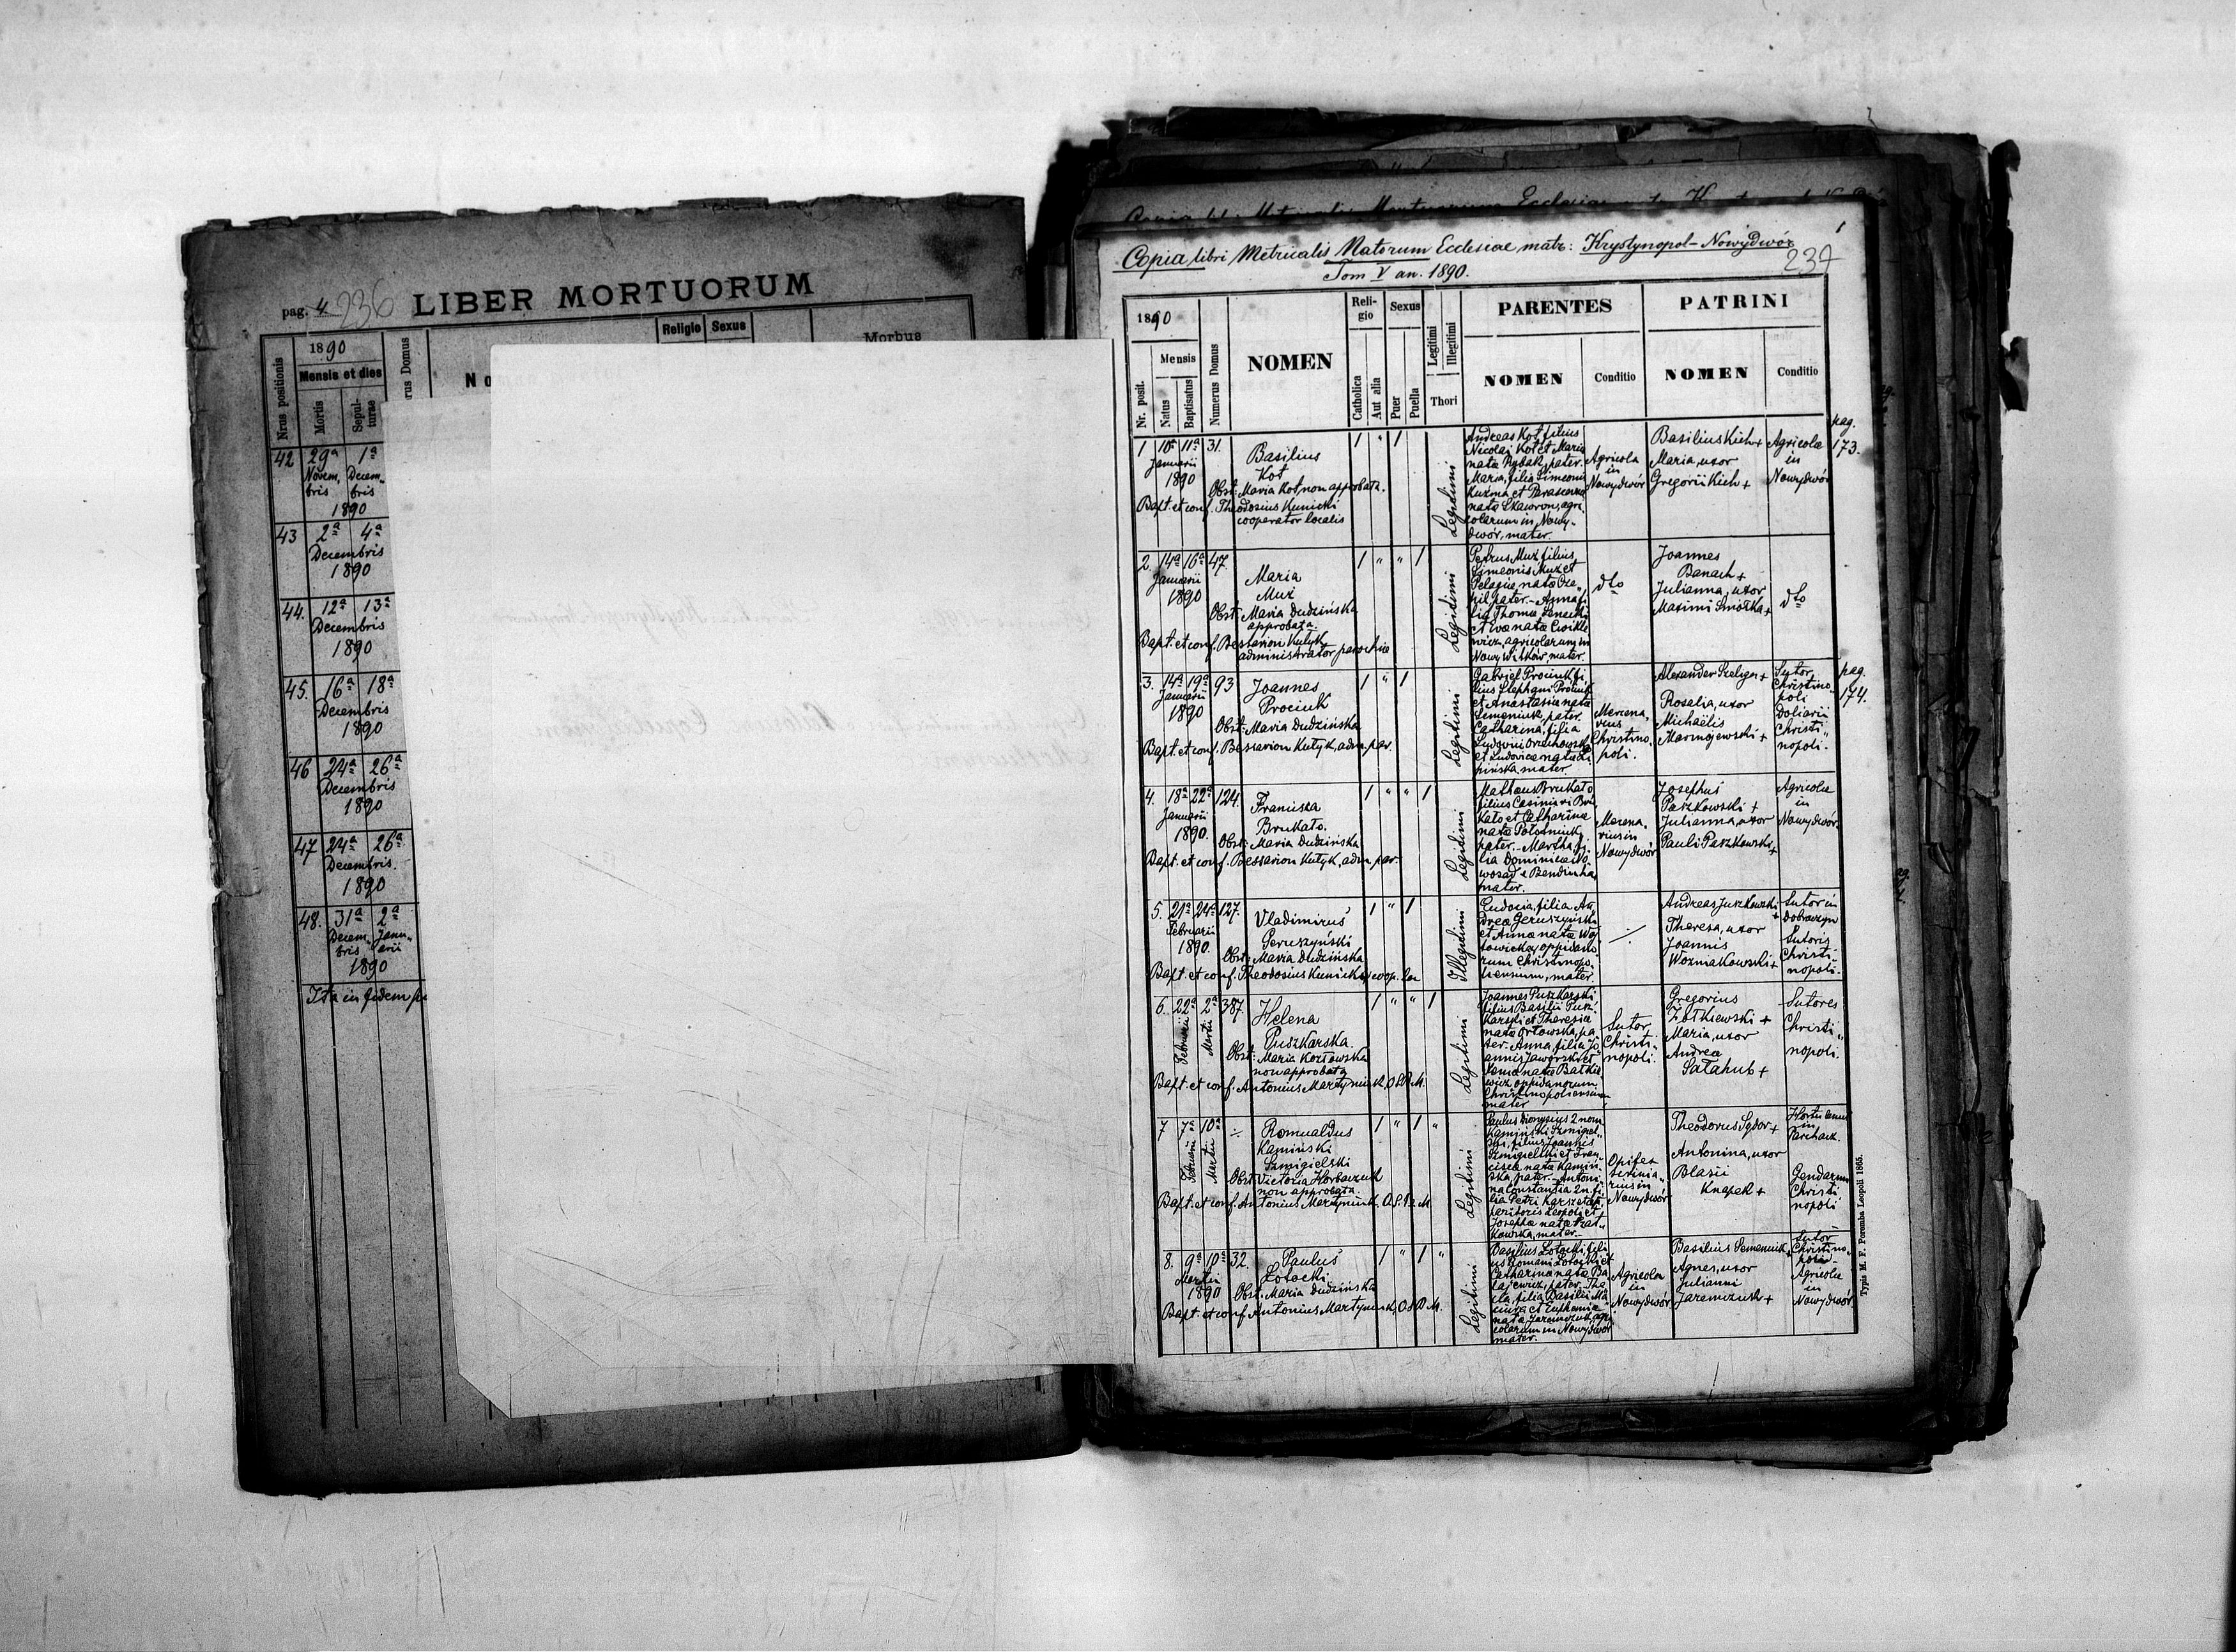 pag. 4. 236 LIBER MORTUORUM
Religio Sexus
1890
Morbus
Nrus positionis
Mensis et dies
rus Domus
Mortis
Sepul-
turae
42 29ª 1ª
Novem Decem
bris bris
1890
43 2ª 4ª
Decembris
1890
44. 12ª 13ª
Decembris
1890
45. 16ª 18ª
Decembris
1890
46 24ª 26ª
Decembris
1890
47 24ª 26ª
Decembris.
1890
48. 31ª 2ª
Decem Janu
bris arii
1890
Ita in fidem
1
Copia libri Metricalis Natorum Ecclesiae matr: Krystynopol-Nowydwór
237
Tom V an. 1890.
1890
Mensis
Nr. posit.
Natus
Baptisatus
Numerus Domus
NOMEN
Reli-
gio
Catholica
Aut alia
Sexus
Puer
Puella
Legitimi
Illegitimi
Thori
PARENTES
NOMEN
Conditio
PATRINI
NOMEN
Conditio
pag.
173.
1 10ª 11ª 31.
Januarii
1890
Basilius
Kot
Obst: Maria Kot, non approbata.
Bapt. et conf. Theodosius Kunicki
cooperator localis
1 " 1
Legitimi
Andreas Kot, filius
Nicolai Kot et Maria
nata Rybak, pater.
Maria, filia Simeonis
Kuzma et Parascewa
nata Skawron, agri
colarum in Nowy-
dwór, mater.
Agricola
in
Nowydwór
Basilius Kich +
Maria, uxor
Gregorii Kich +
Agricolae
in
Nowydwór
2. 14ª 16ª 47.
Januarii
1890
Maria
Muż
Obst: Maria Dudzińska
approbata.
Bapt. et conf. Bessarion Kułyk
administrator parochiae
1 " " 1
Legitimi
Petrus Muż filius
Simeonis Muż et
Pelagia, nata
pater. - Anna fi
lia Thoma
et Eva nata
agricolarum in
Nowy Witków mater.
dto
Joannes
Banach +
Julianna, uxor
Maximi Smolka +
dto
pag.
174.
3. 14ª 19ª 93
Januarii
1890
Joannes
Prociuk
Obst: Maria Dudzińska
Bapt. et conf. Bessarion Kułyk, adm. par.
1 " 1
Legitimi
Gabriel Prociuk fi
lius Stephani Prociuk
et Anastasia nata
Semeniuk, pater.
Catharina, filia
et Ludovica nata
mater.
Mercena
rius
Christino
poli.
Alexander Szeliga +
Rosalia, uxor
Michaelis
Sutor
Christino
poli
Doliarii
Christi
nopoli.
4. 18ª 22ª 124.
Januarii
1890.
Francisca
Brukało.
Obst: Maria Dudzińska
Bapt. et conf. Bessarion Kułyk, adm. par.
1 " " 1
Legitimi
Mathaeus Brukało
filius Casimiri Bru
kało et Catharina
nata
pater. - Martha fi
lia Dominica No
wosad e Bendiucha
mater.
Mercena
rius in
Nowydwór
Josephus
Paszkowski +
Julianna, uxor
Pauli Paszkowski +
Agricolae
in
Nowydwór.
5. 21ª 24ª 127.
Februarii
1890.
Vladimirus
Geruszyński
Obst: Maria Dudzińska
Bapt. et conf. Theodosius Kunicki, coop. loc
1 " 1
Illegitimi
Eudocia, filia An
drea Geruszyński
et Anna nata Woj
towicka, oppidano
rum Christinopo
liensium, mater.
÷
Andreas Juszkowski +
Theresa, uxor
Joannis
Wozniakowski +
Sutor in
Dobraczyn
Sutoris
Christi
nopoli.
6. 22ª 2ª 387.
Februarii
Martii
Helena
Puszkarska.
Obst: Maria Kozłowska
non approbata
Bapt. et conf. Antonius Martyniuk, O.S.B.M.
1 " " 1
Legitimi
Joannes Puszkarski
filius Basilii Pusz
karski et Theresia
nata Orłowska, pa
ter. Anna, filia Jo
annis Jaworski et
nata
oppidanorum
Christinopoliensium,
mater
Sutor
Christi
nopoli.
Gregorius
Żółkiewski +
Maria, uxor
Andrea
Sałahub +
Sutores
Christi
nopoli.
7 7ª 10ª ÷
Februarii
Martii
Romualdus
Kamiński
Szmigielski
Obst: Victoria Horbaczuk
non approbata
Bapt. et conf. Antonius Martyniuk. O.S.B.M
1 " 1 "
Legitimi
Paulus Dionysius 2 nom
Kamiński Szmigiel
ski, filius Joannis
Szmigielski et Fran
cisca nata Kamiń
ska, pater. - Antoni
na Constantia 2 n. fi
lia Petri
Leopoli et
Josepha nata
mater.
Opifex
in
Nowydwór
Theodorus Sydor +
Antonina, uxor
Blasii
Knapek +
Hortulanus
in
Parchacz.
Gendarmi
Christi
nopoli
8. 9ª 10ª 32.
Martii
1890
Paulus
Łotocki
Obst: Maria Dudzińska
Bapt. et conf. Antonius Martyniuk, O.S.B.M.
1 " 1 "
Legitimi
Basilius Łotocki, fili
us Romani Łotocki et
Catharina nata Ba
łajewicz, pater. The
cla, filia Basilii
et Euphemia
nata Jaremczuk, agri
colarum in Nowydwór
mater.
Agricola
in
Nowydwór
Basilius Semeniuk +
Agnes, uxor
Julianni
Jaremczuk +
Sutor
Christino
poli -
Agricolae
in
Nowydwór
Typis M. F. Poremba Leopoli 1865.